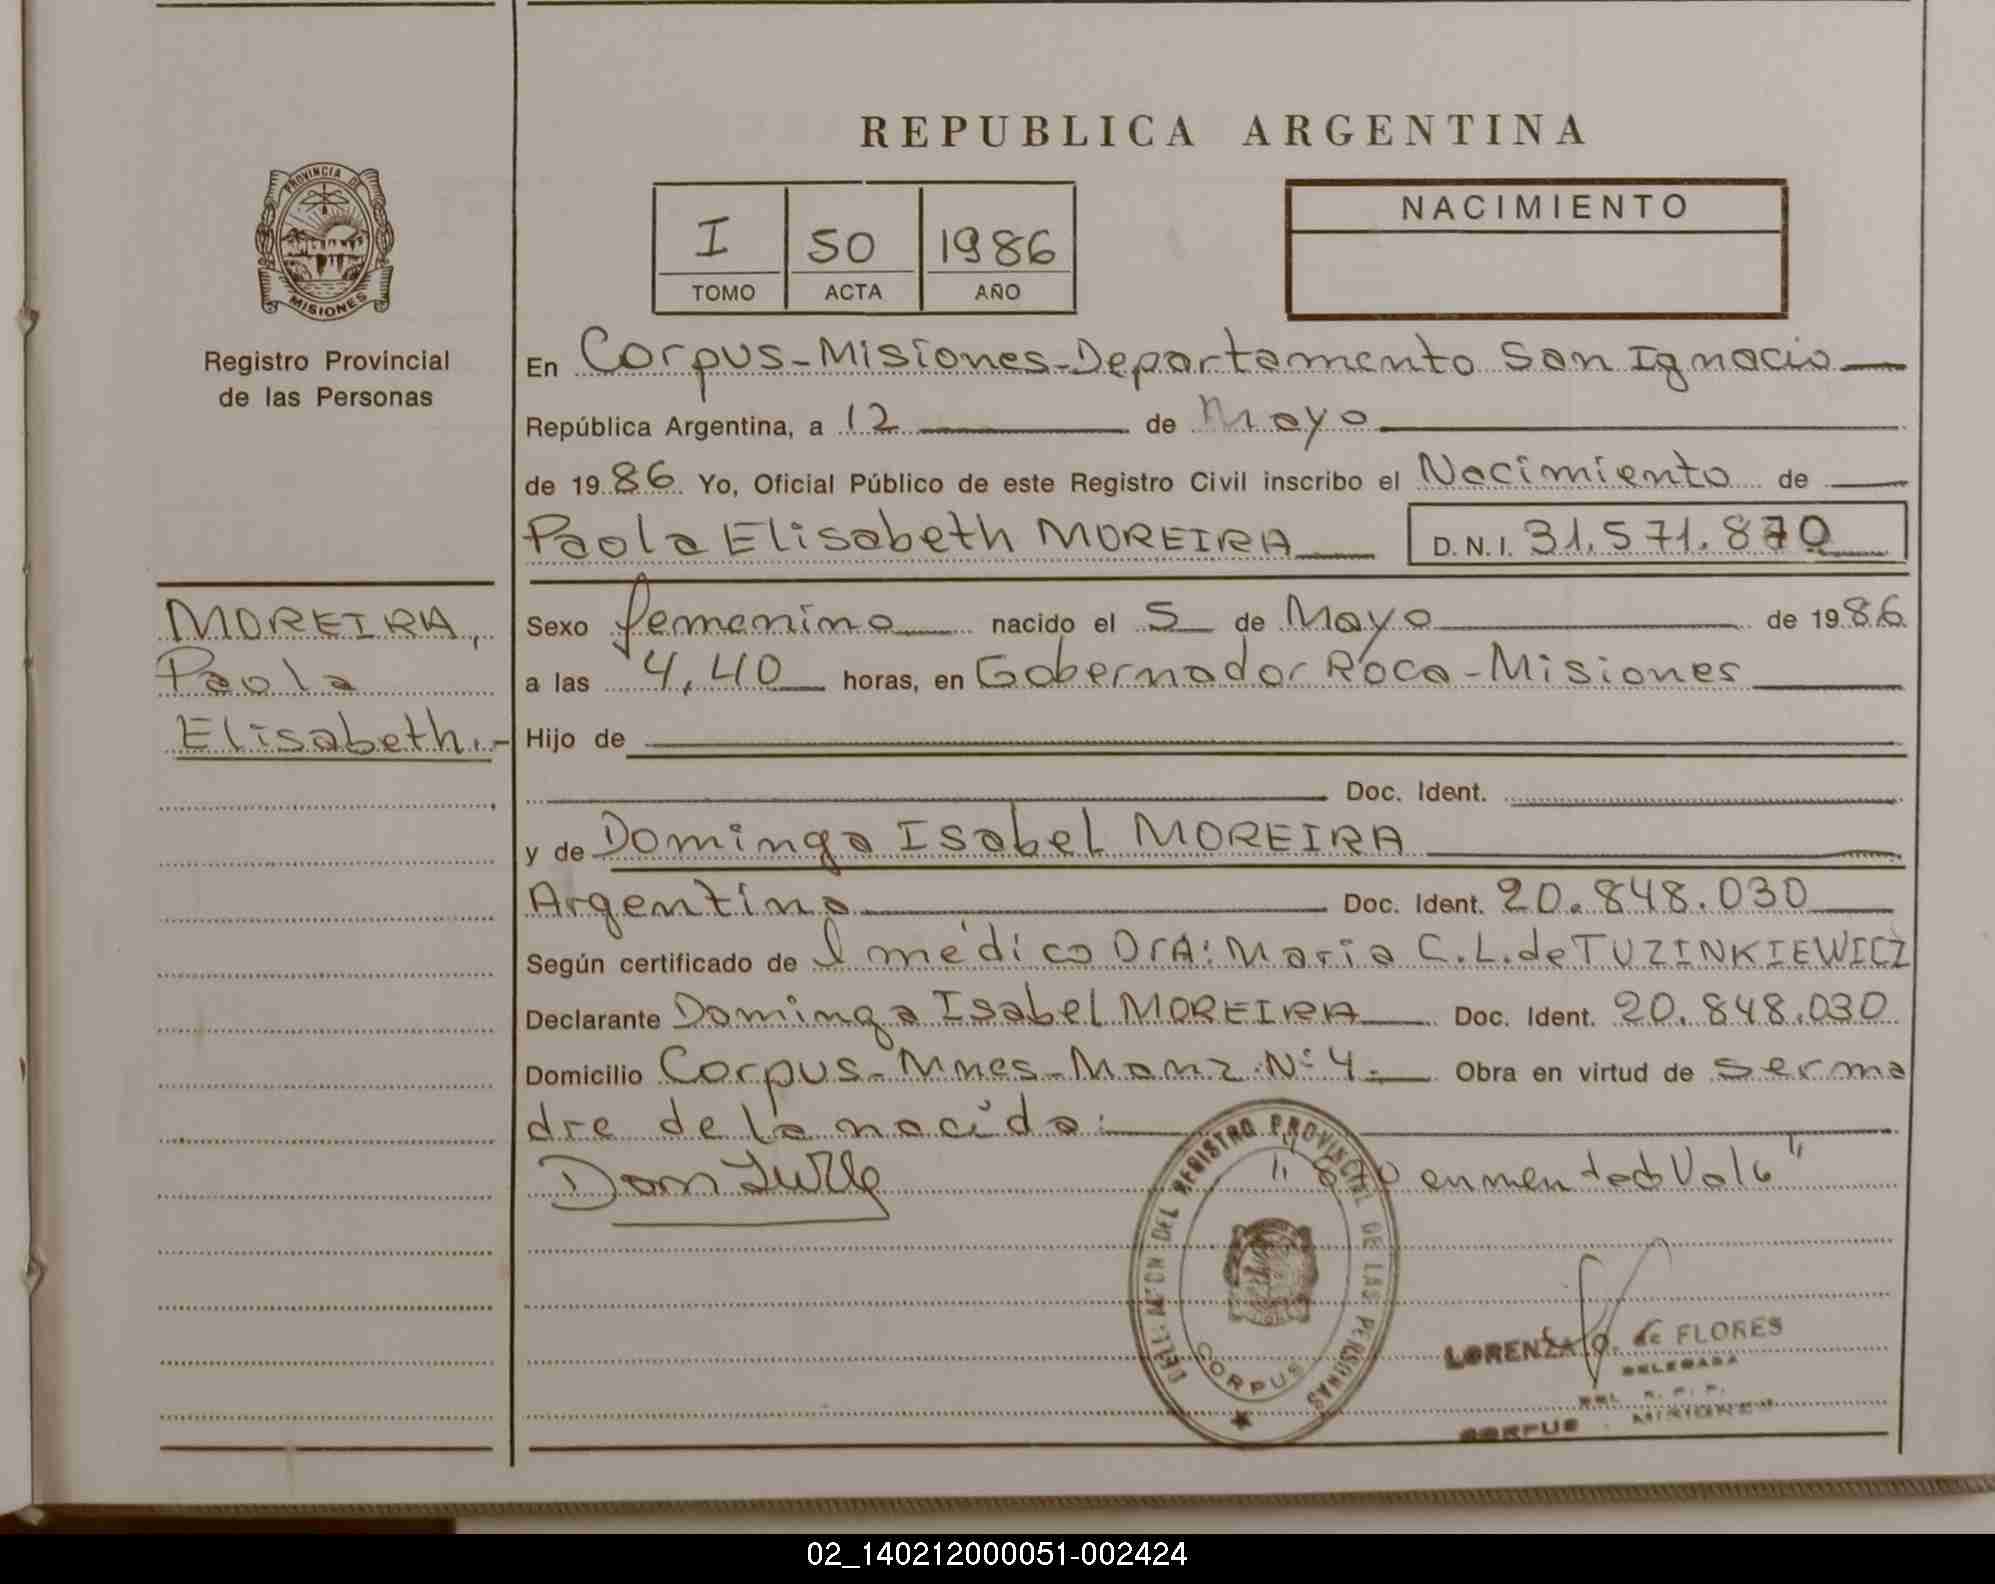 REPUBLICA ARGENTINA
PROVINCIA DE
MISIONES
Registro Provincial
de las Personas
I 50 1986
TOMO ACTA AÑO
NACIMIENTO
En Corpus-Misiones-Departamento San Ignacio
República Argentina, a 12 de Mayo
de 1986 Yo, Oficial Público de este Registro Civil inscribo el Nacimiento de
Paola Elisabeth MOREIRA D.N.I. 31.571.870
MOREIRA,
Paola
Elisabeth.-
Sexo femenino nacido el 5 de Mayo de 1986
a las 4,40 horas, en Gobernador Roca-Misiones
Hijo de
Doc. Ident.
y de Dominga Isabel MOREIRA
Argentina Doc. Ident. 20.848.030
Según certificado de l médico DrA: Maria C.L. de TUZINKIEWICZ
Declarante Dominga Isabel MOREIRA Doc. Ident. 20.848.030
Domicilio Corpus-Mnes-Manz.Nº4.- Obra en virtud de ser ma
dre de la nacida:
enmendado
DELEGACION DEL REGISTRO PROVINCIAL DE LAS PERSONAS
CORPUS
LORENZA O. de FLORES
DELEGADA
DEL R. P. P.
CORPUS - MISIONES
02_140212000051-002424